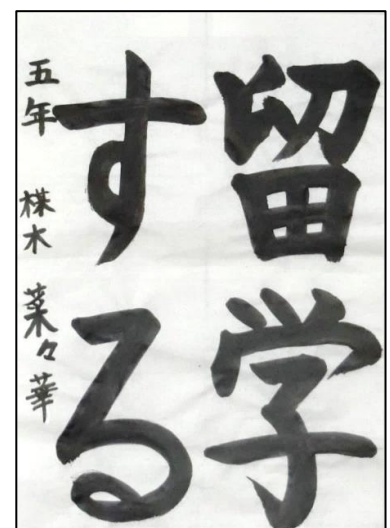 留学
する
五年 株木 菜々華